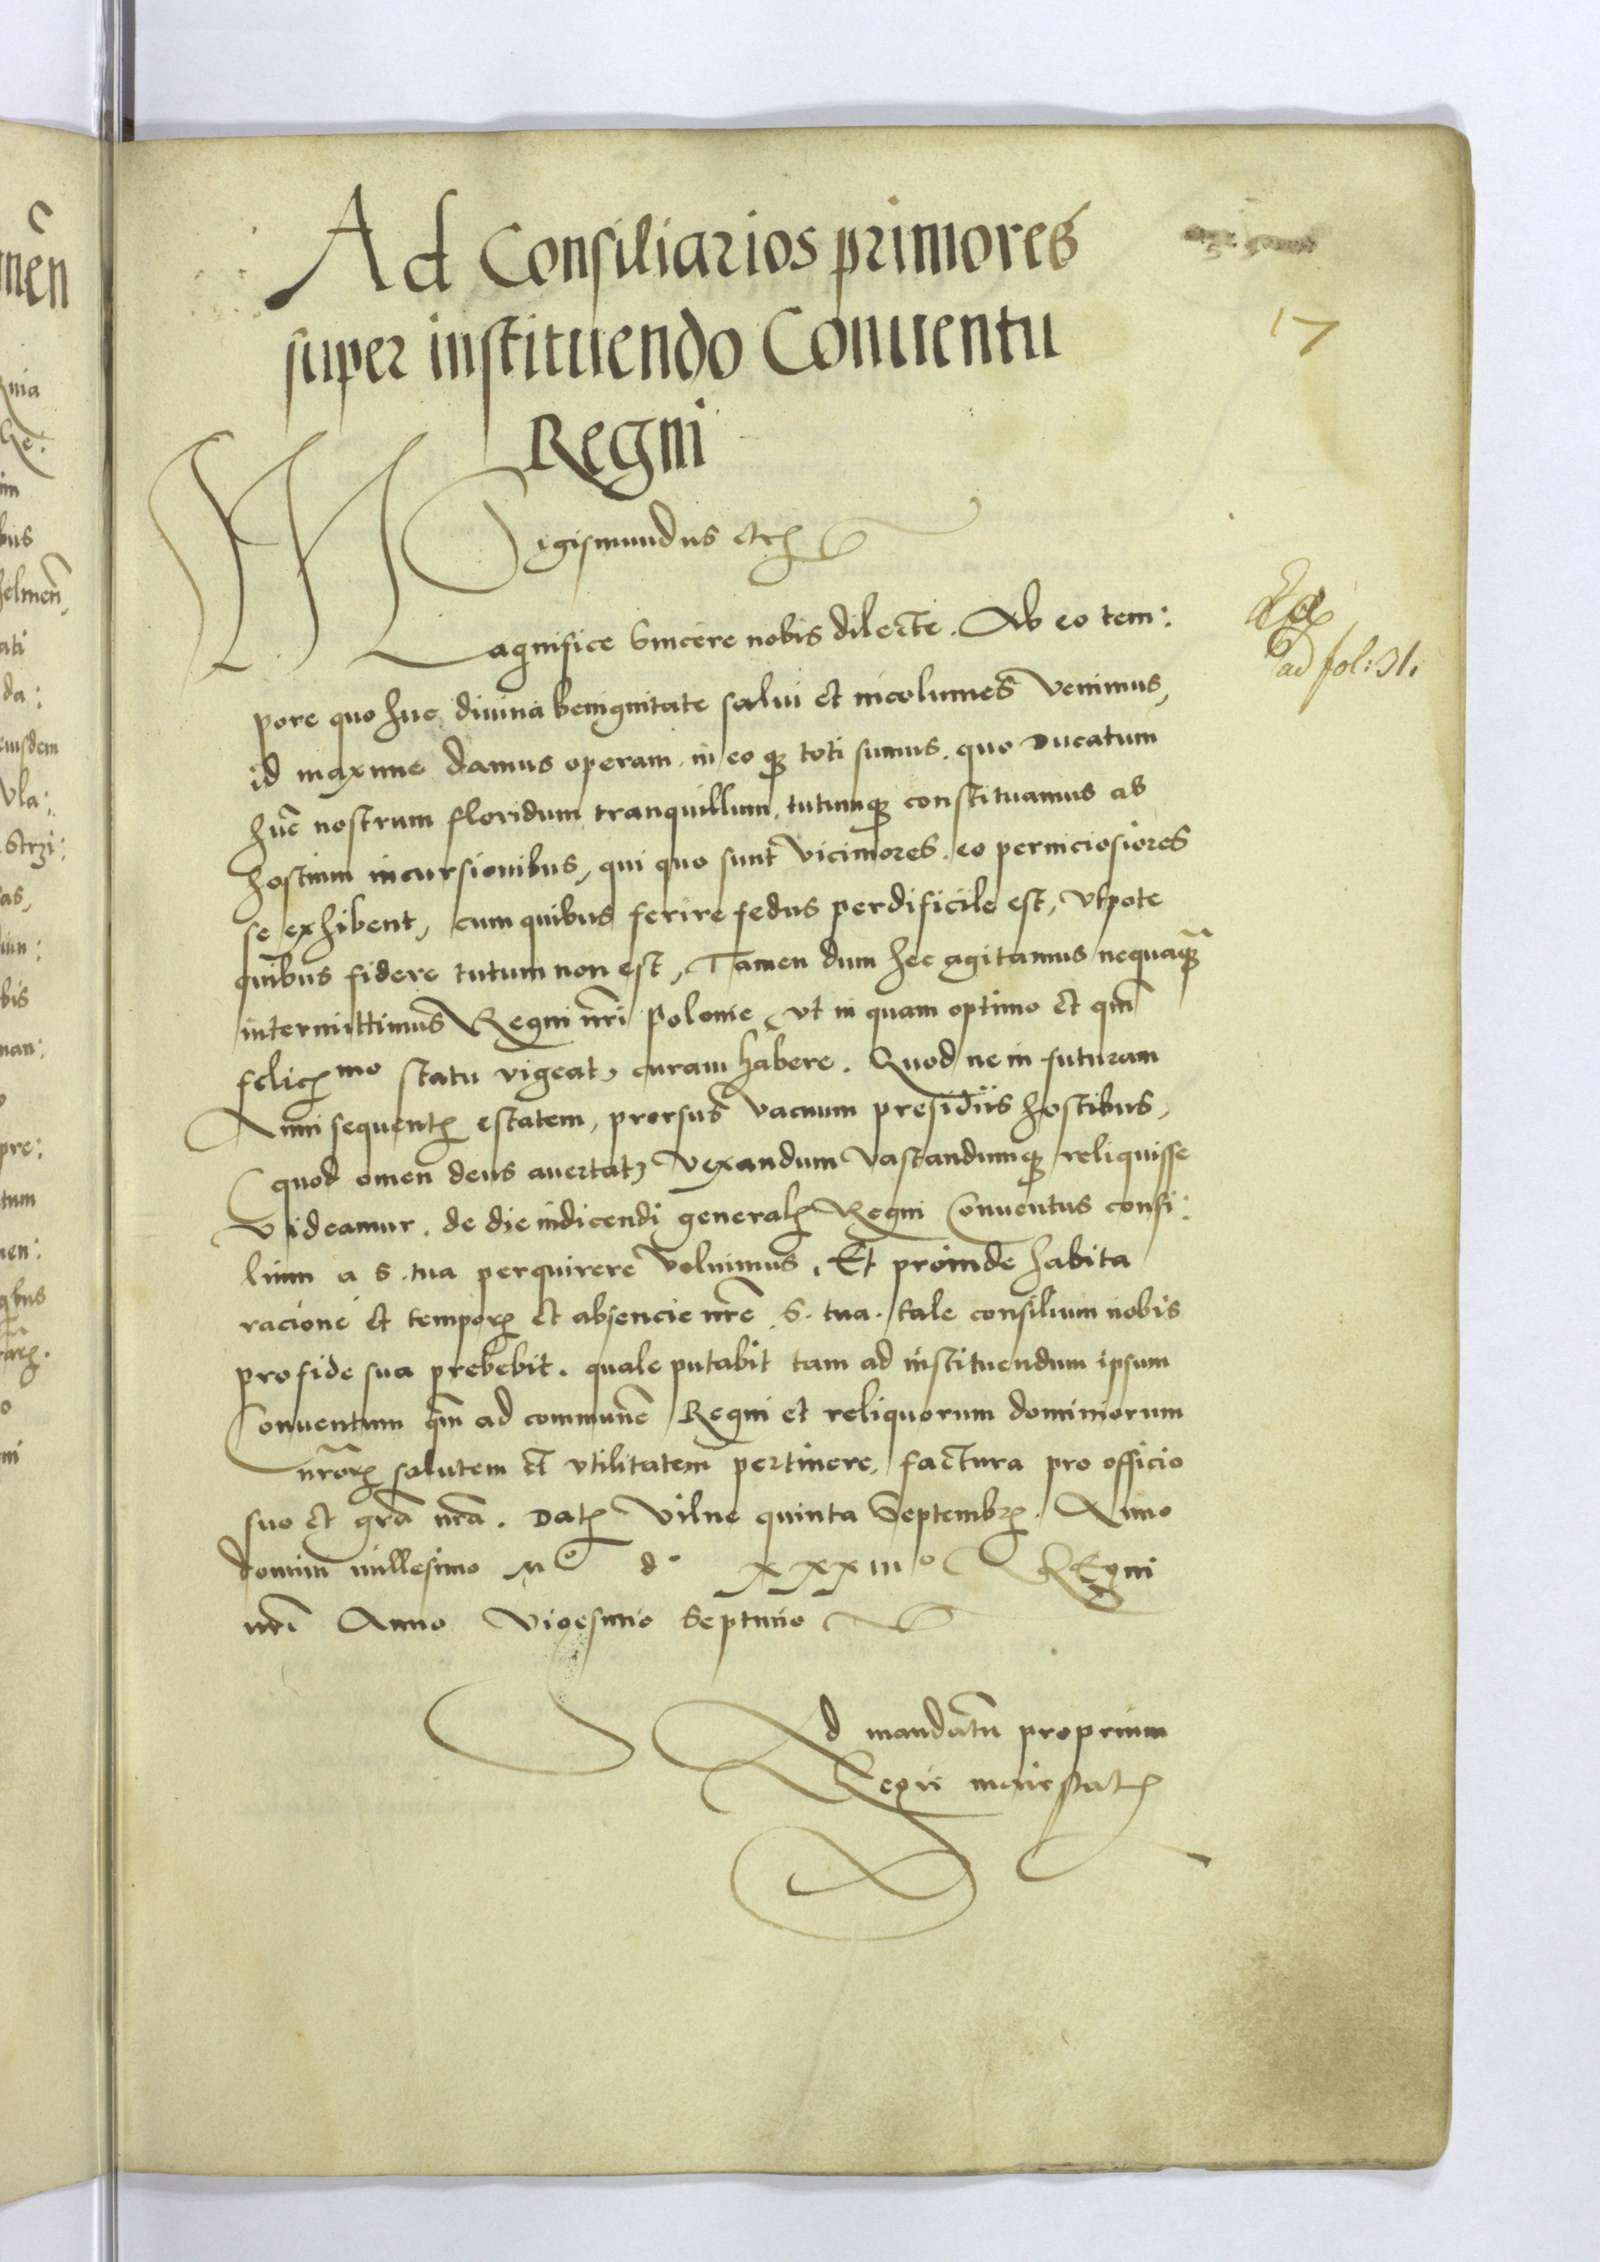 Ad Consiliarios primores
super instituendo Conuentu
Regni
17
Sigismundus etc
Magnifice Sincere nobis dilecte. Ab eo tem:
ad fol: 31.
pore quo huc diuina benignitate salui et incolumes venimus,
id maxime damus operam in eo q3 toti sumus. quo Ducatum
hūc nostrum floridum tranquillum, tutumq3 constituamus ab
hostium incursionibus, qui quo sunt viciniores. eo perniciosiores
se exhibent, cum quibus ferire fedus perdificile est, vtpote
quibus fidere tutum non est, Tamen dum hec agitamus nequaq3
intermittimus Regni nr̄i Polonie, vt in quam optimo et qm̄
felicꝭmo statu vigeat, curam habere. Quod ne in futuram
Anni sequentꝭ estatem, prorsus vacuum presidiis hostibus,
(quod omen deus auertat) vexandum vastandumq3 reliquisse
videamur. de die indicendi generalꝭ Regni Conuentus consi:
lium a S. tua perquirere voluimus. Et proinde habita
racione et temporꝭ et absencie nr̄e S. tua. tale consilium nobis
pro fide sua prebebit. quale putabit tam ad instituendum ipsum
Conuentum qm̄ ad communē Regni et reliquorum dominiorum
nr̄orꝭ salutem et vtilitatem pertinere, factura pro officio
suo et gr̄a nr̄a. Datꝭ Vilne quinta Septembrꝭ. Anno
domini millesimo Mº dº XXXIIIº Regni
nr̄i Anno Vigesimo Septimo
Ad mandatū proprium
Regii maiestatꝭ